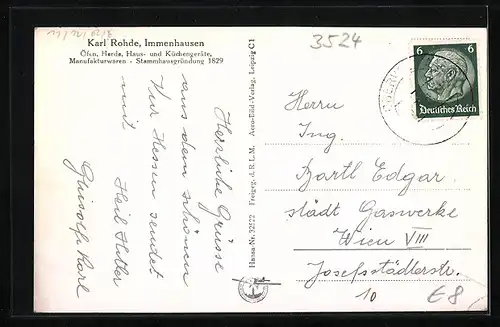 Karl Rohde, Immenhausen
Öfen, Herde, Haus- und Küchengeräte,
Manufakturwaren - Stammhausgründung 1829
3524
6 6
Deutsches Reich
Herzliche Grüsse
aus dem schönen
Kur Hessen sendet
mit Heil Hitler
Karl
Hansa-Nr. 32522 Freigeg. d. R L M. Aero-Bild-Verlag, Leipzig C1
Herrn
Ing.
Bartl Edgar
städt Gaswerke
Wien VIII
Josefstädterstr.
10
€8